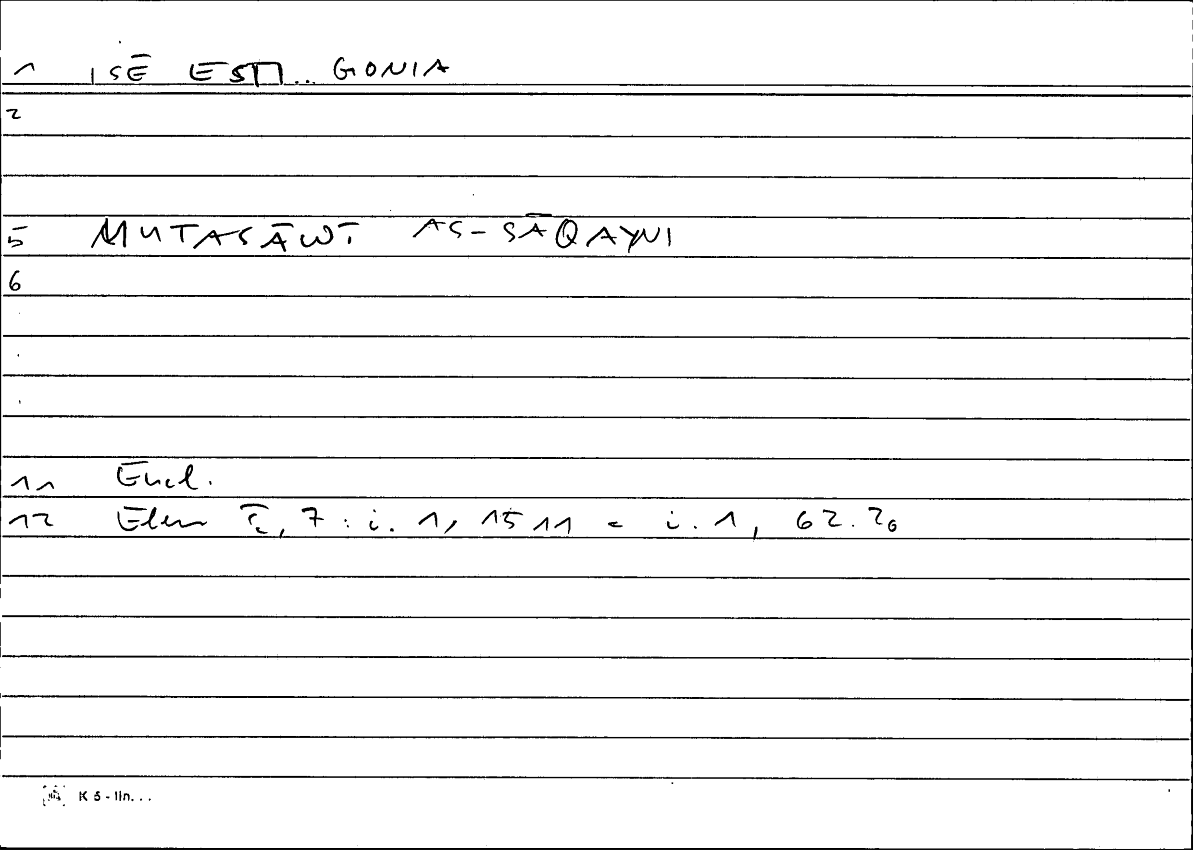 1 ISĒ ESTI... GONIA
2
5 MUTASĀWĪ AS-SĀQAYNI
6
11 Eucl.
12 Elem I, 7 : i. 1, 15 11 = i. 1, 62.26
K 5 - lin...